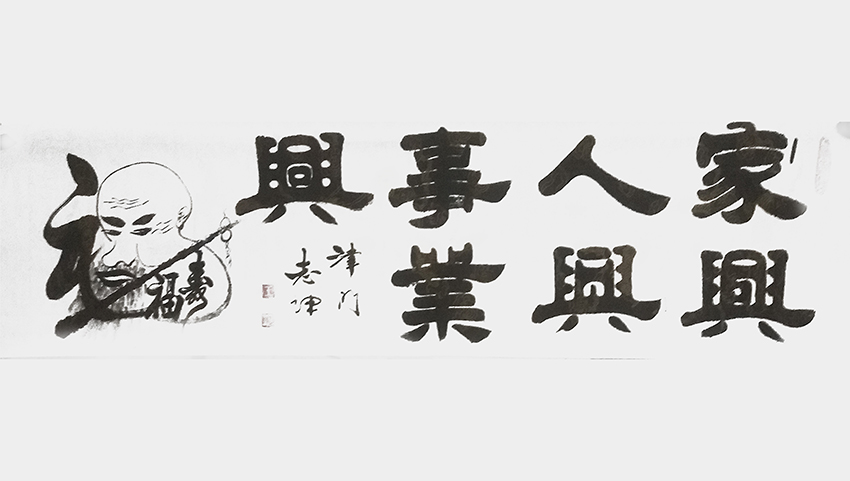 家興
人興
事業
興
津門
志坤
福
壽